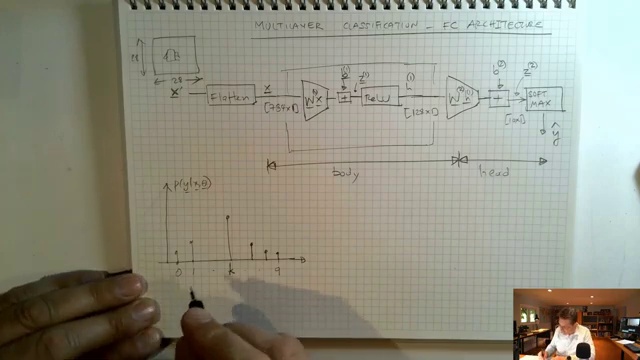 MULTILAYER CLASSIFICATION - FC ARCHITECTURE
28
28
X'
Flatten
x
[784x1]
W⁽¹⁾x
b⁽¹⁾
+
z⁽¹⁾
ReLU
h⁽¹⁾
[128x1]
W⁽²⁾h⁽¹⁾
b⁽²⁾
+
z⁽²⁾
[10x1]
SOFT
MAX
ŷ
body
head
p(y|x,θ)
0 1 . k 9